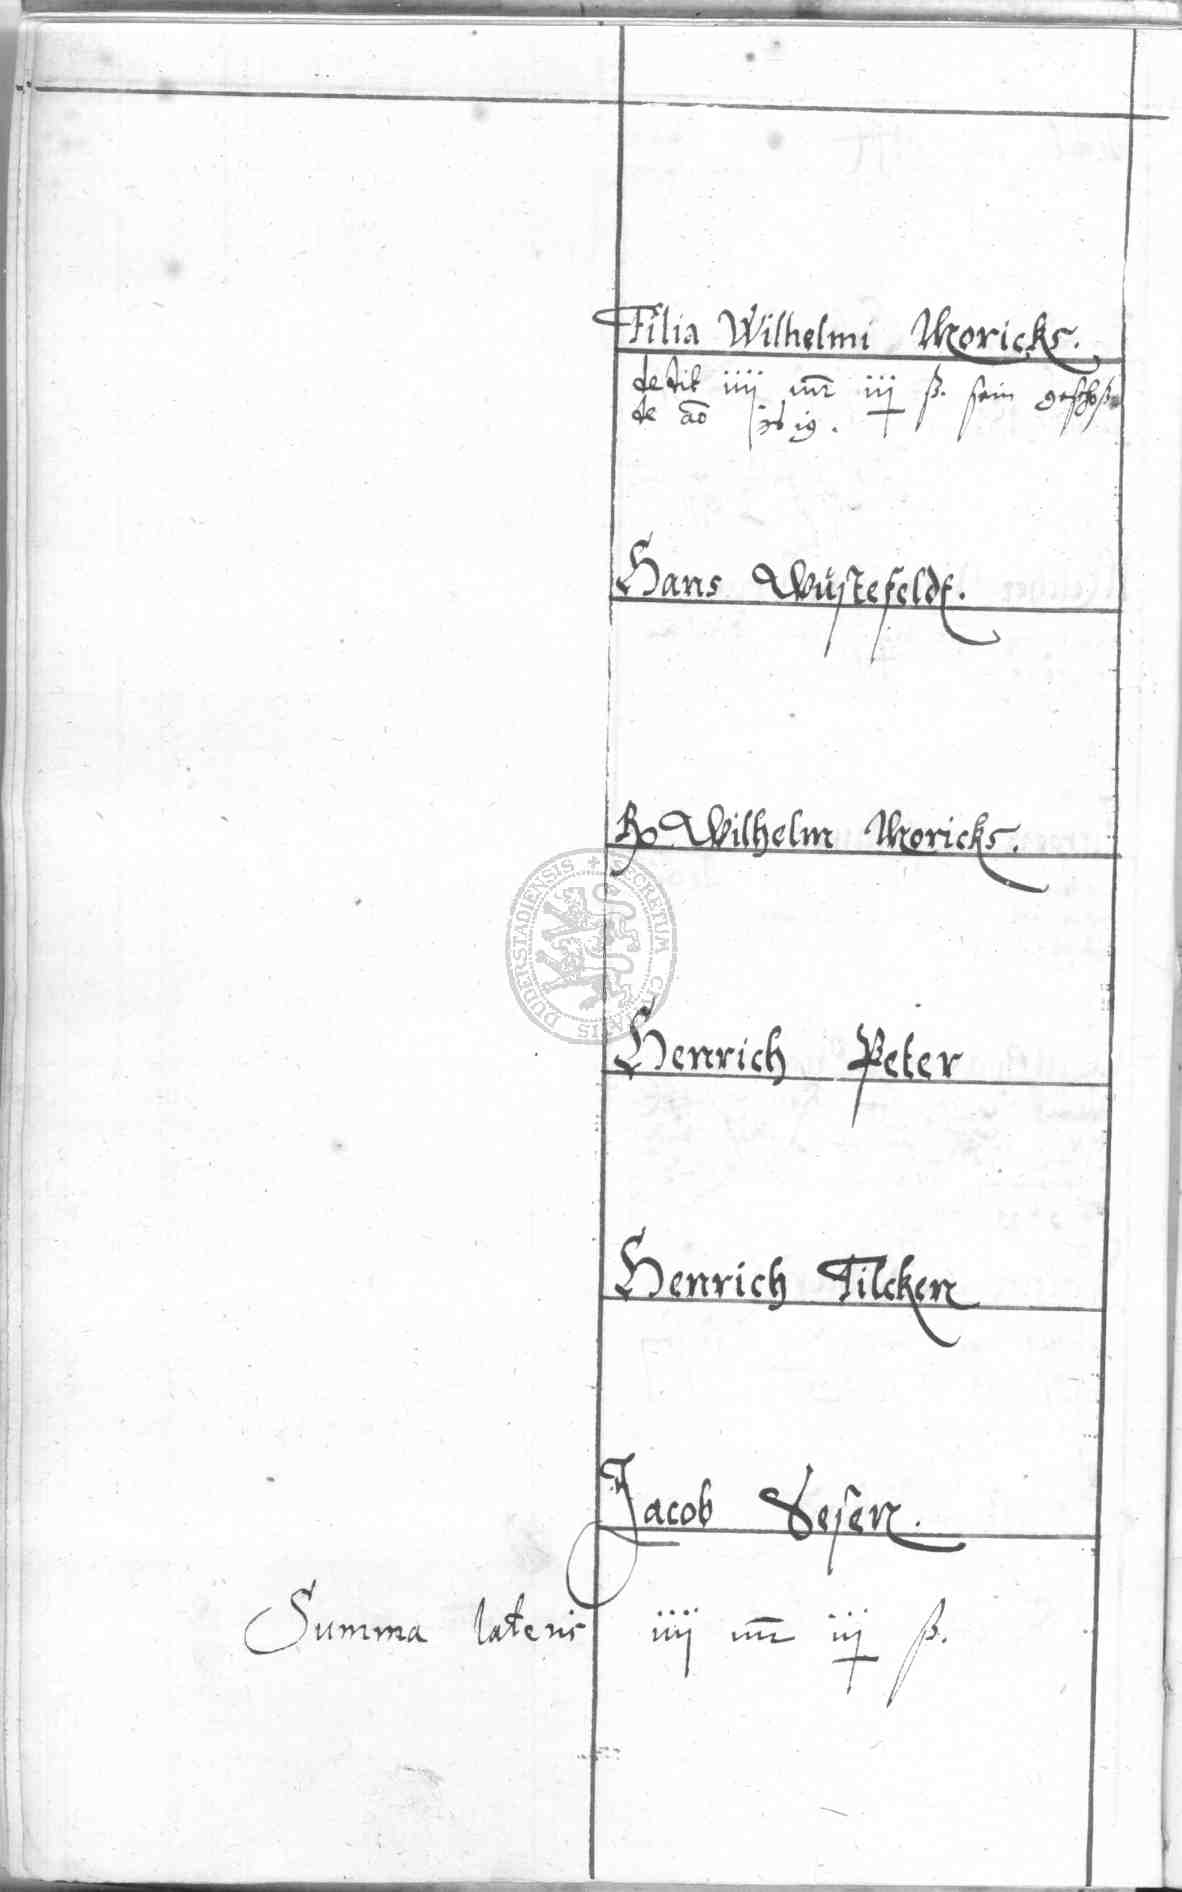 Filia Wilhelmi Moricks.
dedit iiij mr iij ß. sein geschoß
de ao
Hans Wüstefeldt.
Wilhelm Moricks.
SECRETUM CIVITATIS DUDERSTADIENSIS
Henrich Peter
Henrich Tilcken
Jacob Vesen.
Summa lateris iiij mr iij ß.